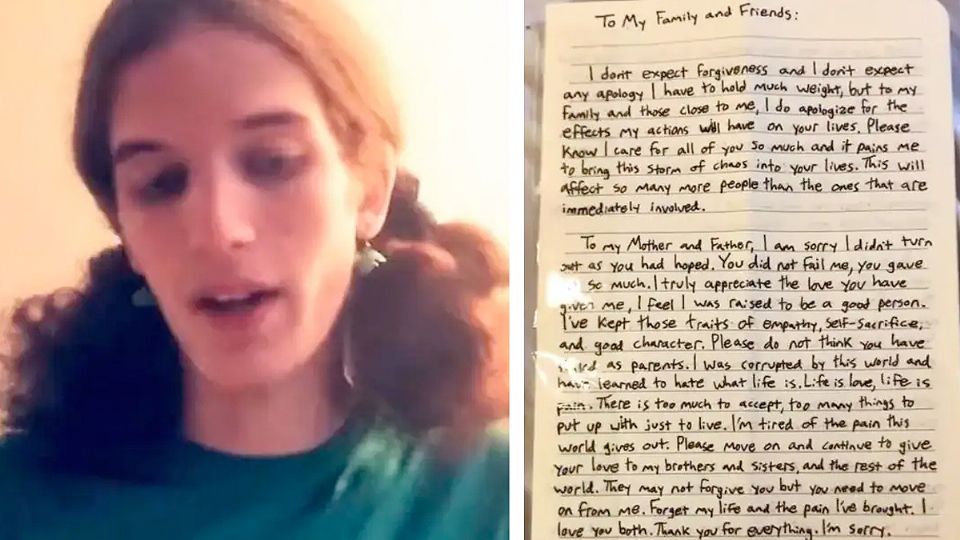 To My Family and Friends:
I don't expect forgiveness and I don't expect
any apology I have to hold much weight, but to my
family and those close to me, I do apologize for the
effects my actions will have on your lives. Please
know I care for all of you so much and it pains me
to bring this storm of chaos into your lives. This will
affect so many more people than the ones that are
immediately involved.
To my Mother and Father, I am sorry I didn't turn
out as you had hoped. You did not fail me, you gave
so much. I truly appreciate the love you have
given me, I feel I was raised to be a good person.
I've kept those traits of empathy, self-sacrifice,
and good character. Please do not think you have
as parents. I was corrupted by this world and
have learned to hate what life is. Life is love, life is
pain. There is too much to accept, too many things to
put up with just to live. I'm tired of the pain this
world gives out. Please move on and continue to give
your love to my brothers and sisters, and the rest of the
world. They may not forgive you but you need to move
on from me. Forget my life and the pain I've brought. I
love you both. Thank you for everything. I'm sorry.